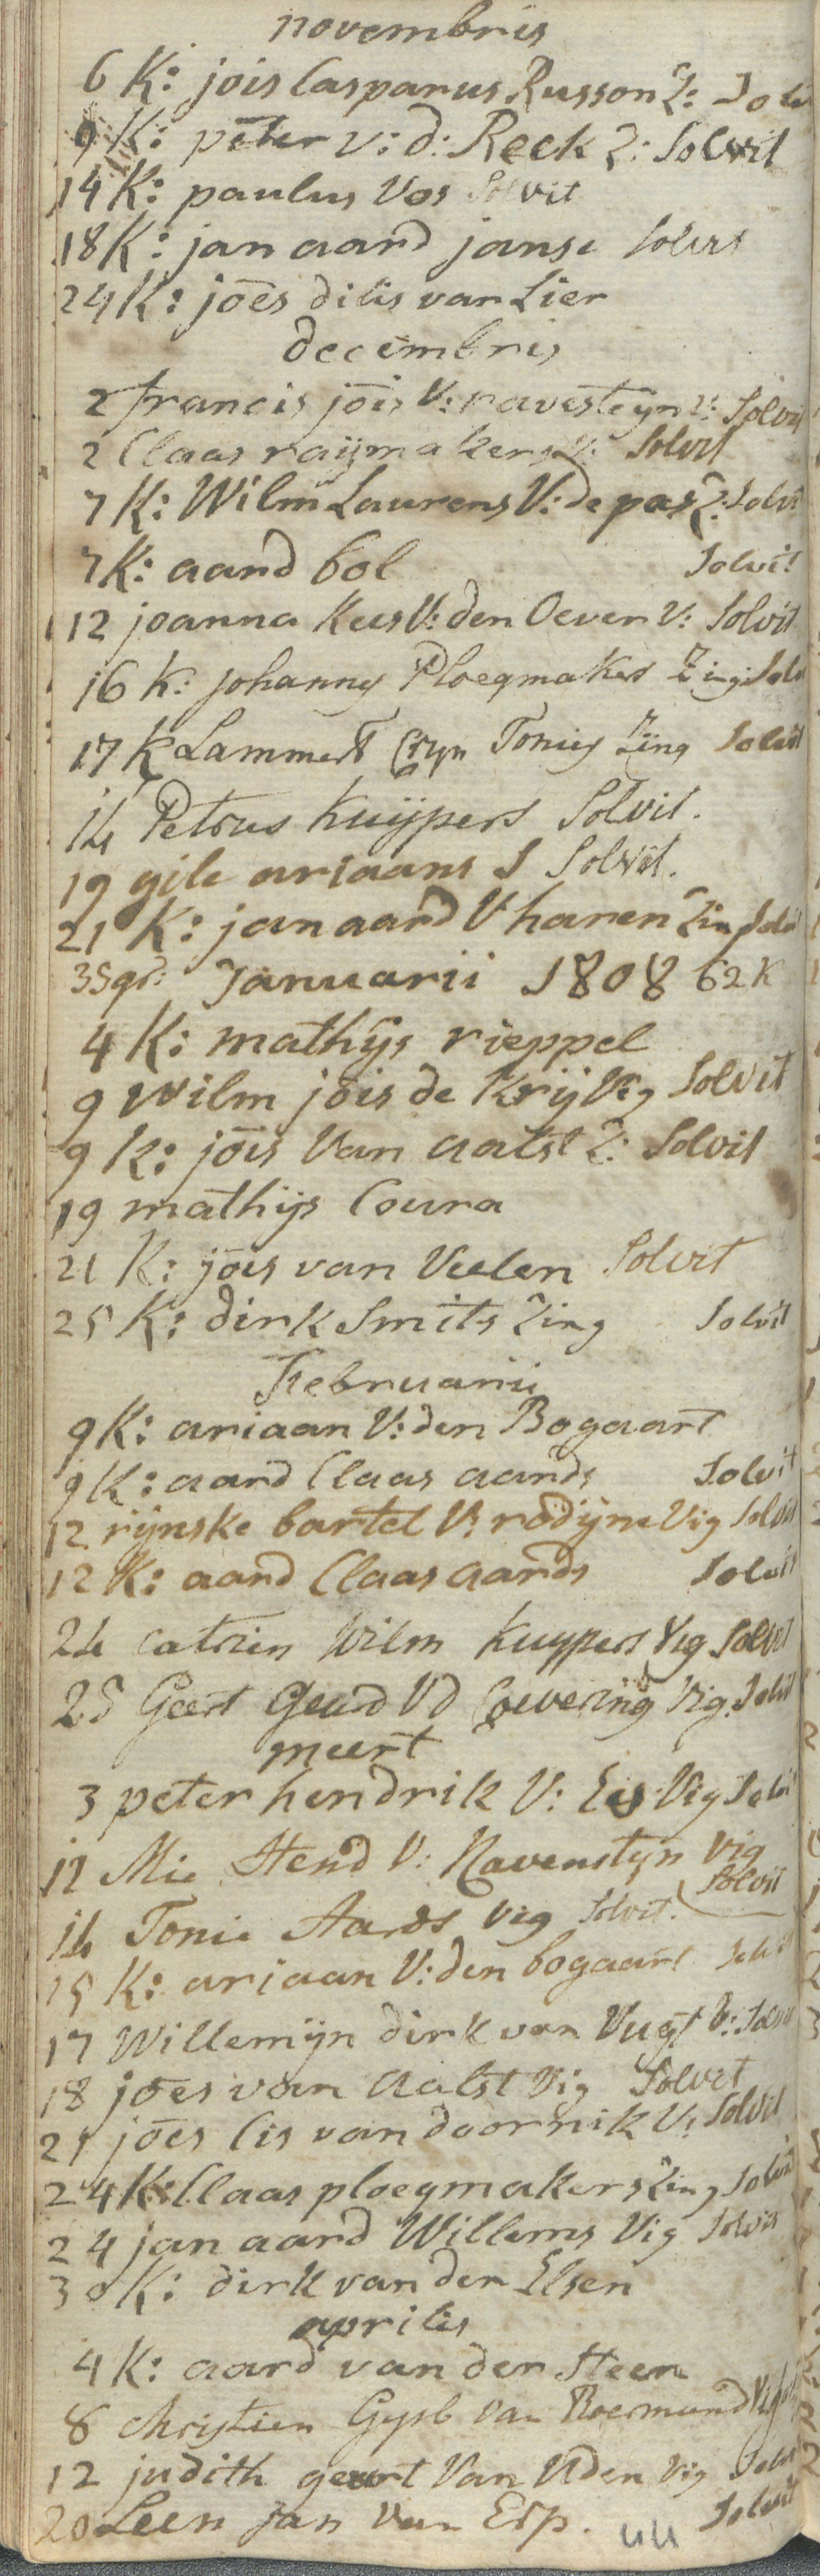 novembris
6 K: jois Casparus Russon Z: Solv
9 K: peter v: d: Reek Z: Solvit
14 K: paulus Vos Solvit
18 K: jan aard janse Solvit
24 K: jōes dilis van Lier
decembris
2 francis jōis V: ravesteyn v: Solvit
2 Claas raijmakers V: Solvit
7 K: Wilm Laurens V: de pas Z: Solvit
7 K: aard bol Solvit
12 joanna Kees V: den Oever V: Solvit
16 K: Johannes Ploegmakers Zing Solv
17 K Lammert Tonies Zing Solvit
14 Petrus Kuijpers Solvit.
19 gile ariaans S Solvit.
21 K: jan aard V haren Zing Solvit
Januarii 1808 62 K
4 K: mathijs rieppel
9 Wilm jōis de Krij Vig Solvit
9 K: jōis Van aalst Z: Solvit
19 mathijs Coura
21 K: jōes van Veelen Solvit
25 K: dirk Smits Zing Solvit
Februarii
9 K: ariaan V: den Bogaart
9 K: aard Claas aards Solvit
12 rijnske bartel V: rodijne Vig Solvit
12 K: aard Claas aards Solvit
24 catrien Wilm Kuypers Vig Solvit
25 Geert Geurd Vd Coevering Vig. Solvit
meert
3 peter hendrik V: Es Vig Solvit
12 Mie Hend V: Ravenstyn Vig
Solvit
14 Tonie Aards Vig Solvit.
15 K: ariaan V: den bogaart Solvit
17 Willemijn dirk van Vugt V: Solvit
18 jōes van Aalst Vig Solvit
21 jōes Cis van doornik V: Solvit
24 K: Claas ploegmakers Zing Solvit
24 jan aard Willems Vig Solvit
30 K: dirk van der Elsen
aprilis
4 K: aard van der Steen
8 Christien Gysb Van Roermund Vig
12 judith geurt Van Uden Vig Solvit
20 Leen Jan Van Erp. Solvit